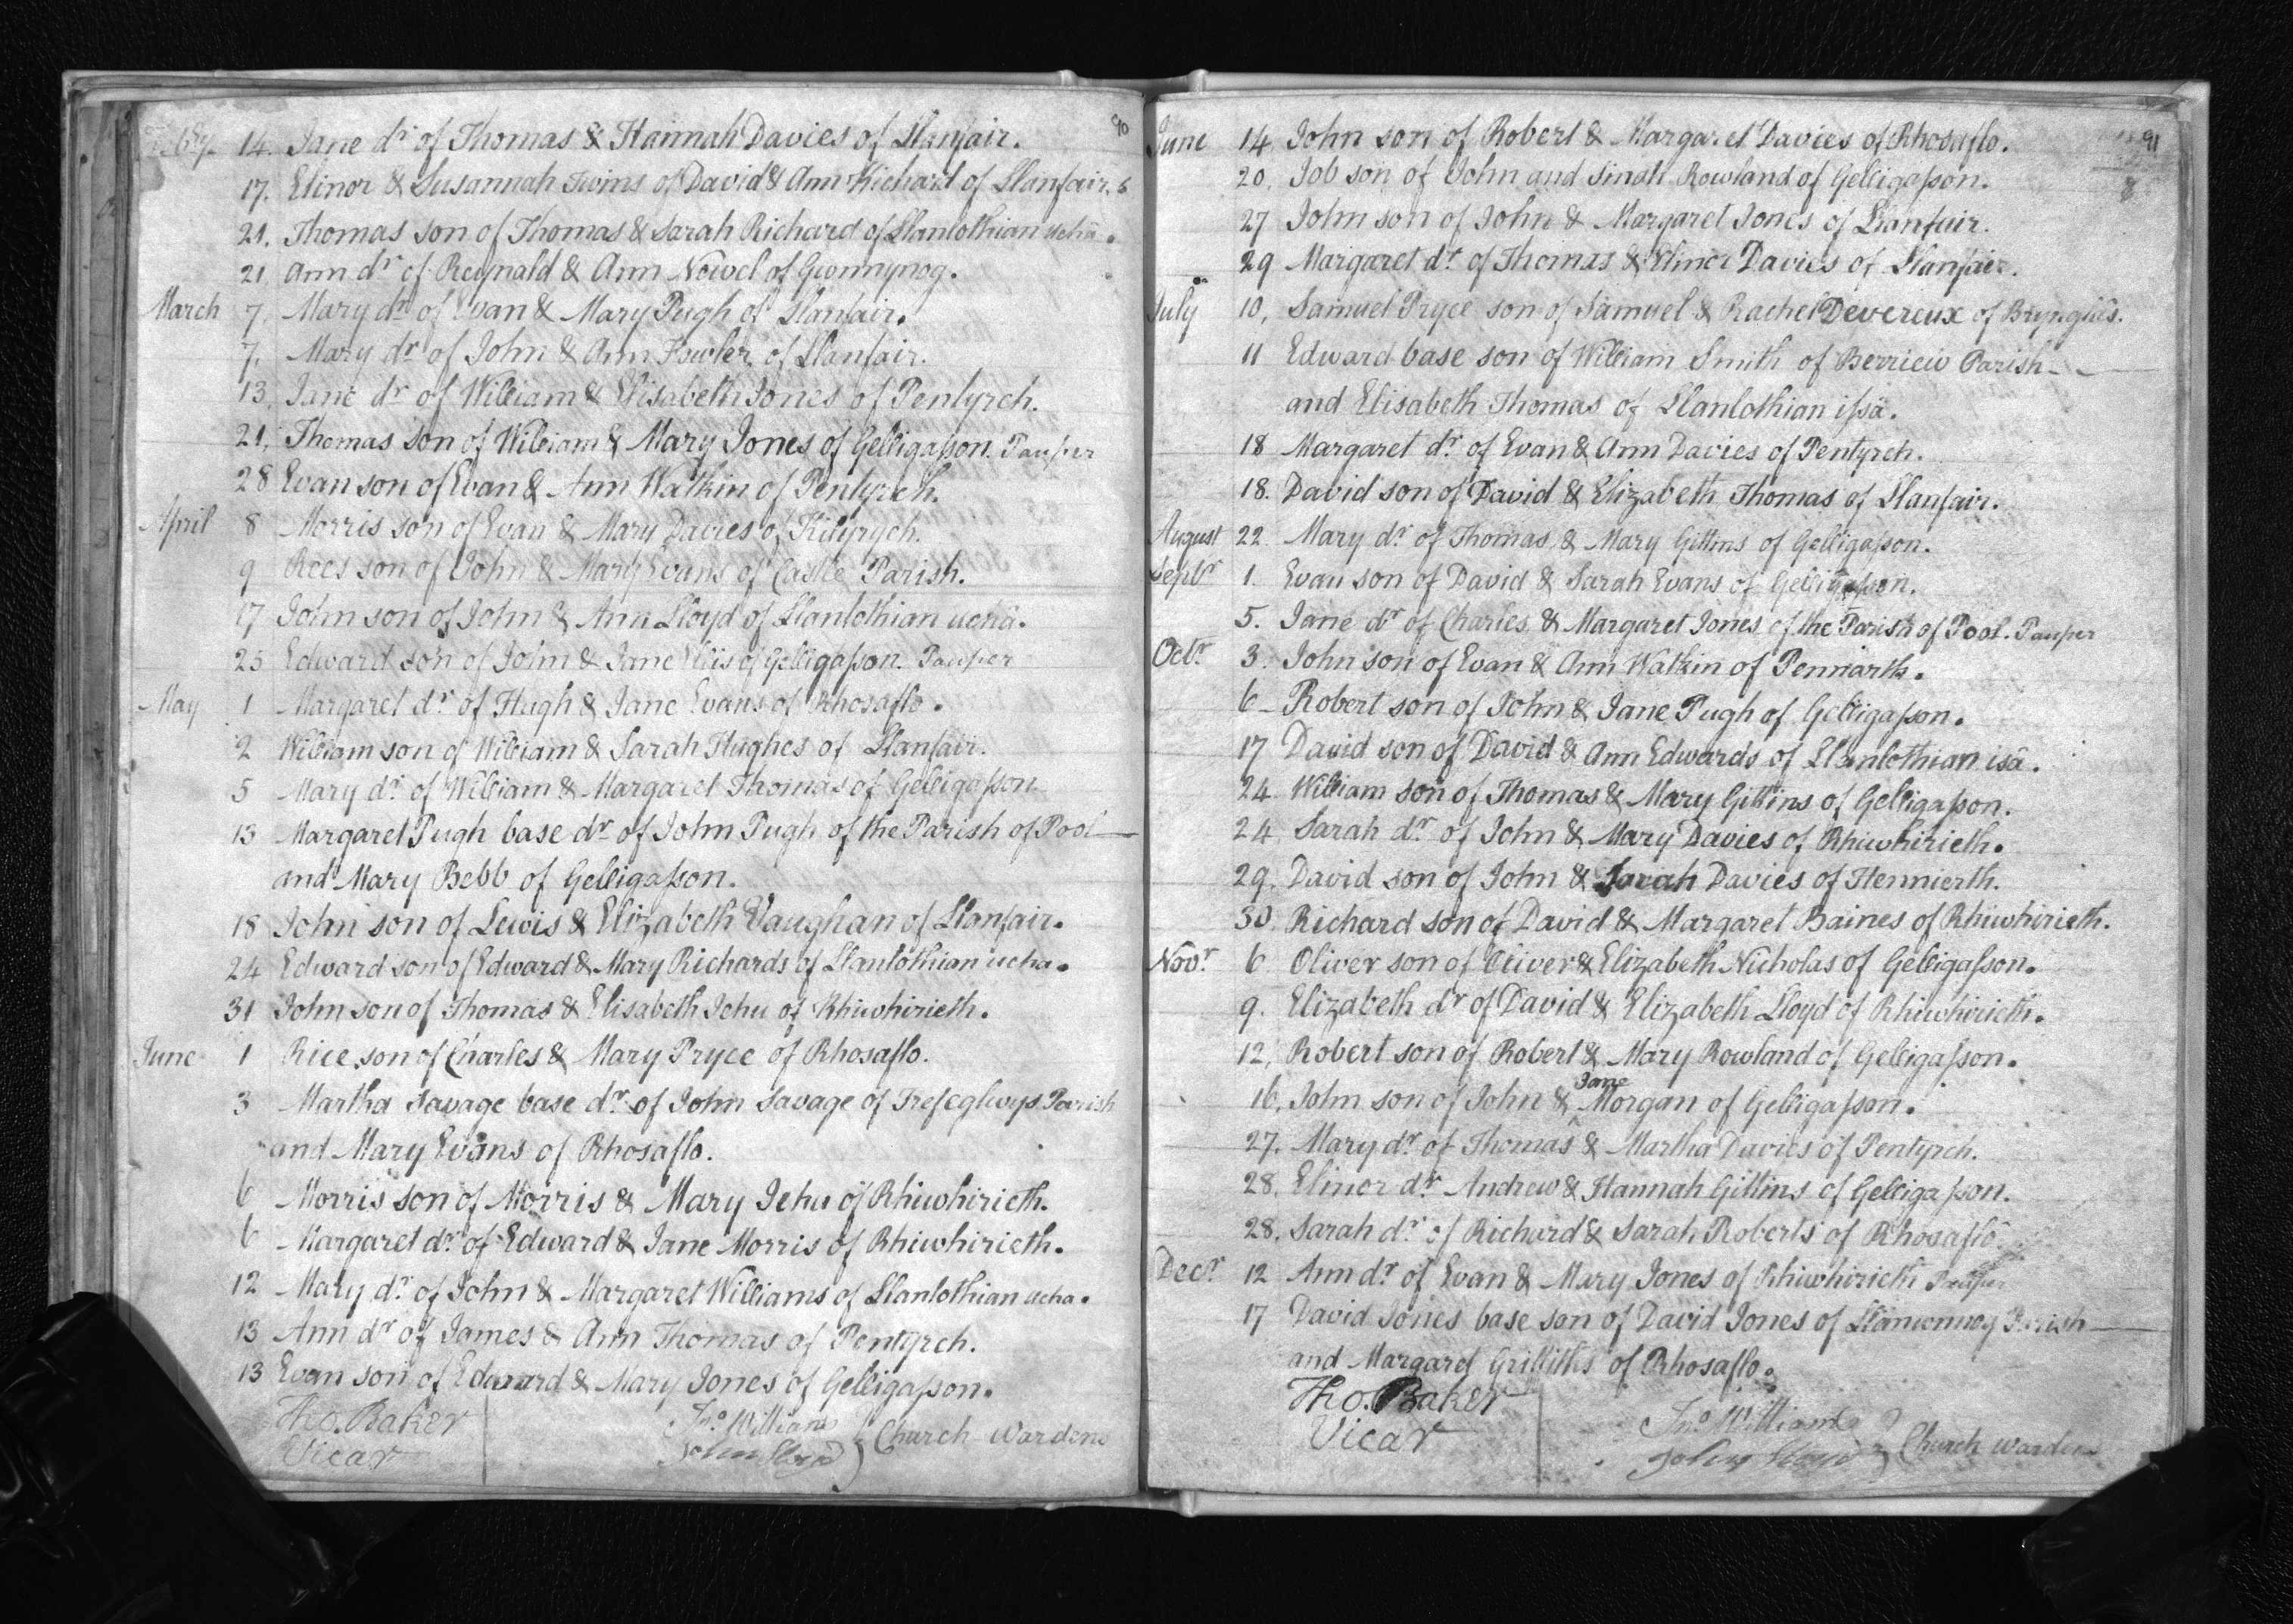 90
Febry 14. Jane dr of Thomas & Hannah Davies of Llanfair.
17. Elinor & Susannah Twins of David & Ann Richard of Llanfair.
21. Thomas son of Thomas & Sarah Richard of Llanlothian ucha.
21. Ann dr of Reynald & Ann Newel of Gwnnynog.
March 7. Mary dr of Evan & Mary Pugh of Llanfair.
7. Mary dr of John & Ann Fowler of Llanfair.
13. Jane dr of William & Elisabeth Jones of Pentyrch.
21. Thomas son of William & Mary Jones of Gelligasson. Pauper
28 Evan son of Evan & Ann Watkin of Pentyrch.
April 8 Morris son of Evan & Mary Davies of Kilyrych.
9 Rees son of John & Mary Evans of Castle Parish.
17 John son of John & Ann Lloyd of Llanlothian ucha.
25 Edward son of John & Jane Ellis of Gelligasson. Pauper
May 1 Margaret dr of Hugh & Jane Evans of Rhosaflo.
2 William son of William & Sarah Hughes of Llanfair.
5 Mary dr of William & Margaret Thomas of Gelligasson
13 Margaret Pugh base dr of John Pugh of the Parish of Pool
and Mary Bebb of Gelligasson.
18 John son of Lewis & Elizabeth Vaughan of Llanfair.
24 Edward son of Edward & Mary Richards of Llanlothian ucha.
31 John son of Thomas & Elisabeth Jehu of Rhiwhirieth.
June 1 Rice son of Charles & Mary Pryce of Rhosaflo.
3 Martha Savage base dr of John Savage of Trefeglwys Parish
and Mary Evans of Rhosaflo.
6 Morris son of Morris & Mary Jehu of Rhiwhirieth.
6 Margaret dr of Edward & Jane Morris of Rhiwhirieth.
12 Mary dr of John & Margaret Williams of Llanlothian ucha.
13 Ann dr of James & Ann Thomas of Pentyrch.
13 Evan son of Edward & Mary Jones of Gelligasson.
Tho. Baker
Vicar
Jno Williams
John Lloyd } Church Wardens
91
June 14 John son of Robert & Margaret Davies of Rhosaflo.
20. Job son of John and Sinah Rowland of Gelligasson.
27 John son of John & Margaret Jones of Llanfair.
29 Margaret dr of Thomas & Elinor Davies of Llanfair.
July 10, Samuel Pryce son of Samuel & Rachel Devereux of Bryngläs.
11 Edward base son of William Smith of Berriew Parish
and Elisabeth Thomas of Llanlothian issä.
18 Margaret dr of Evan & Ann Davies of Pentyrch.
18. David son of David & Elizabeth Thomas of Llanfair.
August 22. Mary dr of Thomas & Mary Gittins of Gelligasson.
Septr 1. Evan son of David & Sarah Evans of Gelligasson.
5. Jane dr of Charles & Margaret Jones of the Parish of Pool. Pauper
Octr 3. John son of Evan & Ann Watkin of Penniarth.
6 Robert son of John & Jane Pugh of Gelligasson.
17 David son of David & Ann Edwards of Llanlothian isä.
24 William son of Thomas & Mary Gittins of Gelligasson.
24. Sarah dr of John & Mary Davies of Rhiwhirieth.
29. David son of John & Sarah Davies of Hennierth.
30. Richard son of David & Margaret Baines of Rhiwhirieth.
Novr 6 Oliver son of Oliver & Elizabeth Nicholas of Gelligasson.
9. Elizabeth dr of David & Elizabeth Lloyd of Rhiwhirieth.
12, Robert son of Robert & Mary Rowland of Gelligasson.
16, John son of John & Jane Morgan of Gelligasson.
27. Mary dr of Thomas & Martha Davies of Pentyrch.
28. Elinor dr Andrew & Hannah Gittins of Gelligasson.
28. Sarah dr of Richard & Sarah Roberts of Rhosaflo.
Decr 12 Ann dr of Evan & Mary Jones of Rhiwhirieth Pauper
17 David Jones base son of David Jones of Llanwnnog Parish
and Margaret Griffiths of Rhosaflo.
Tho. Baker
Vicar
Jno Williams
John Lloyd } Church wardens